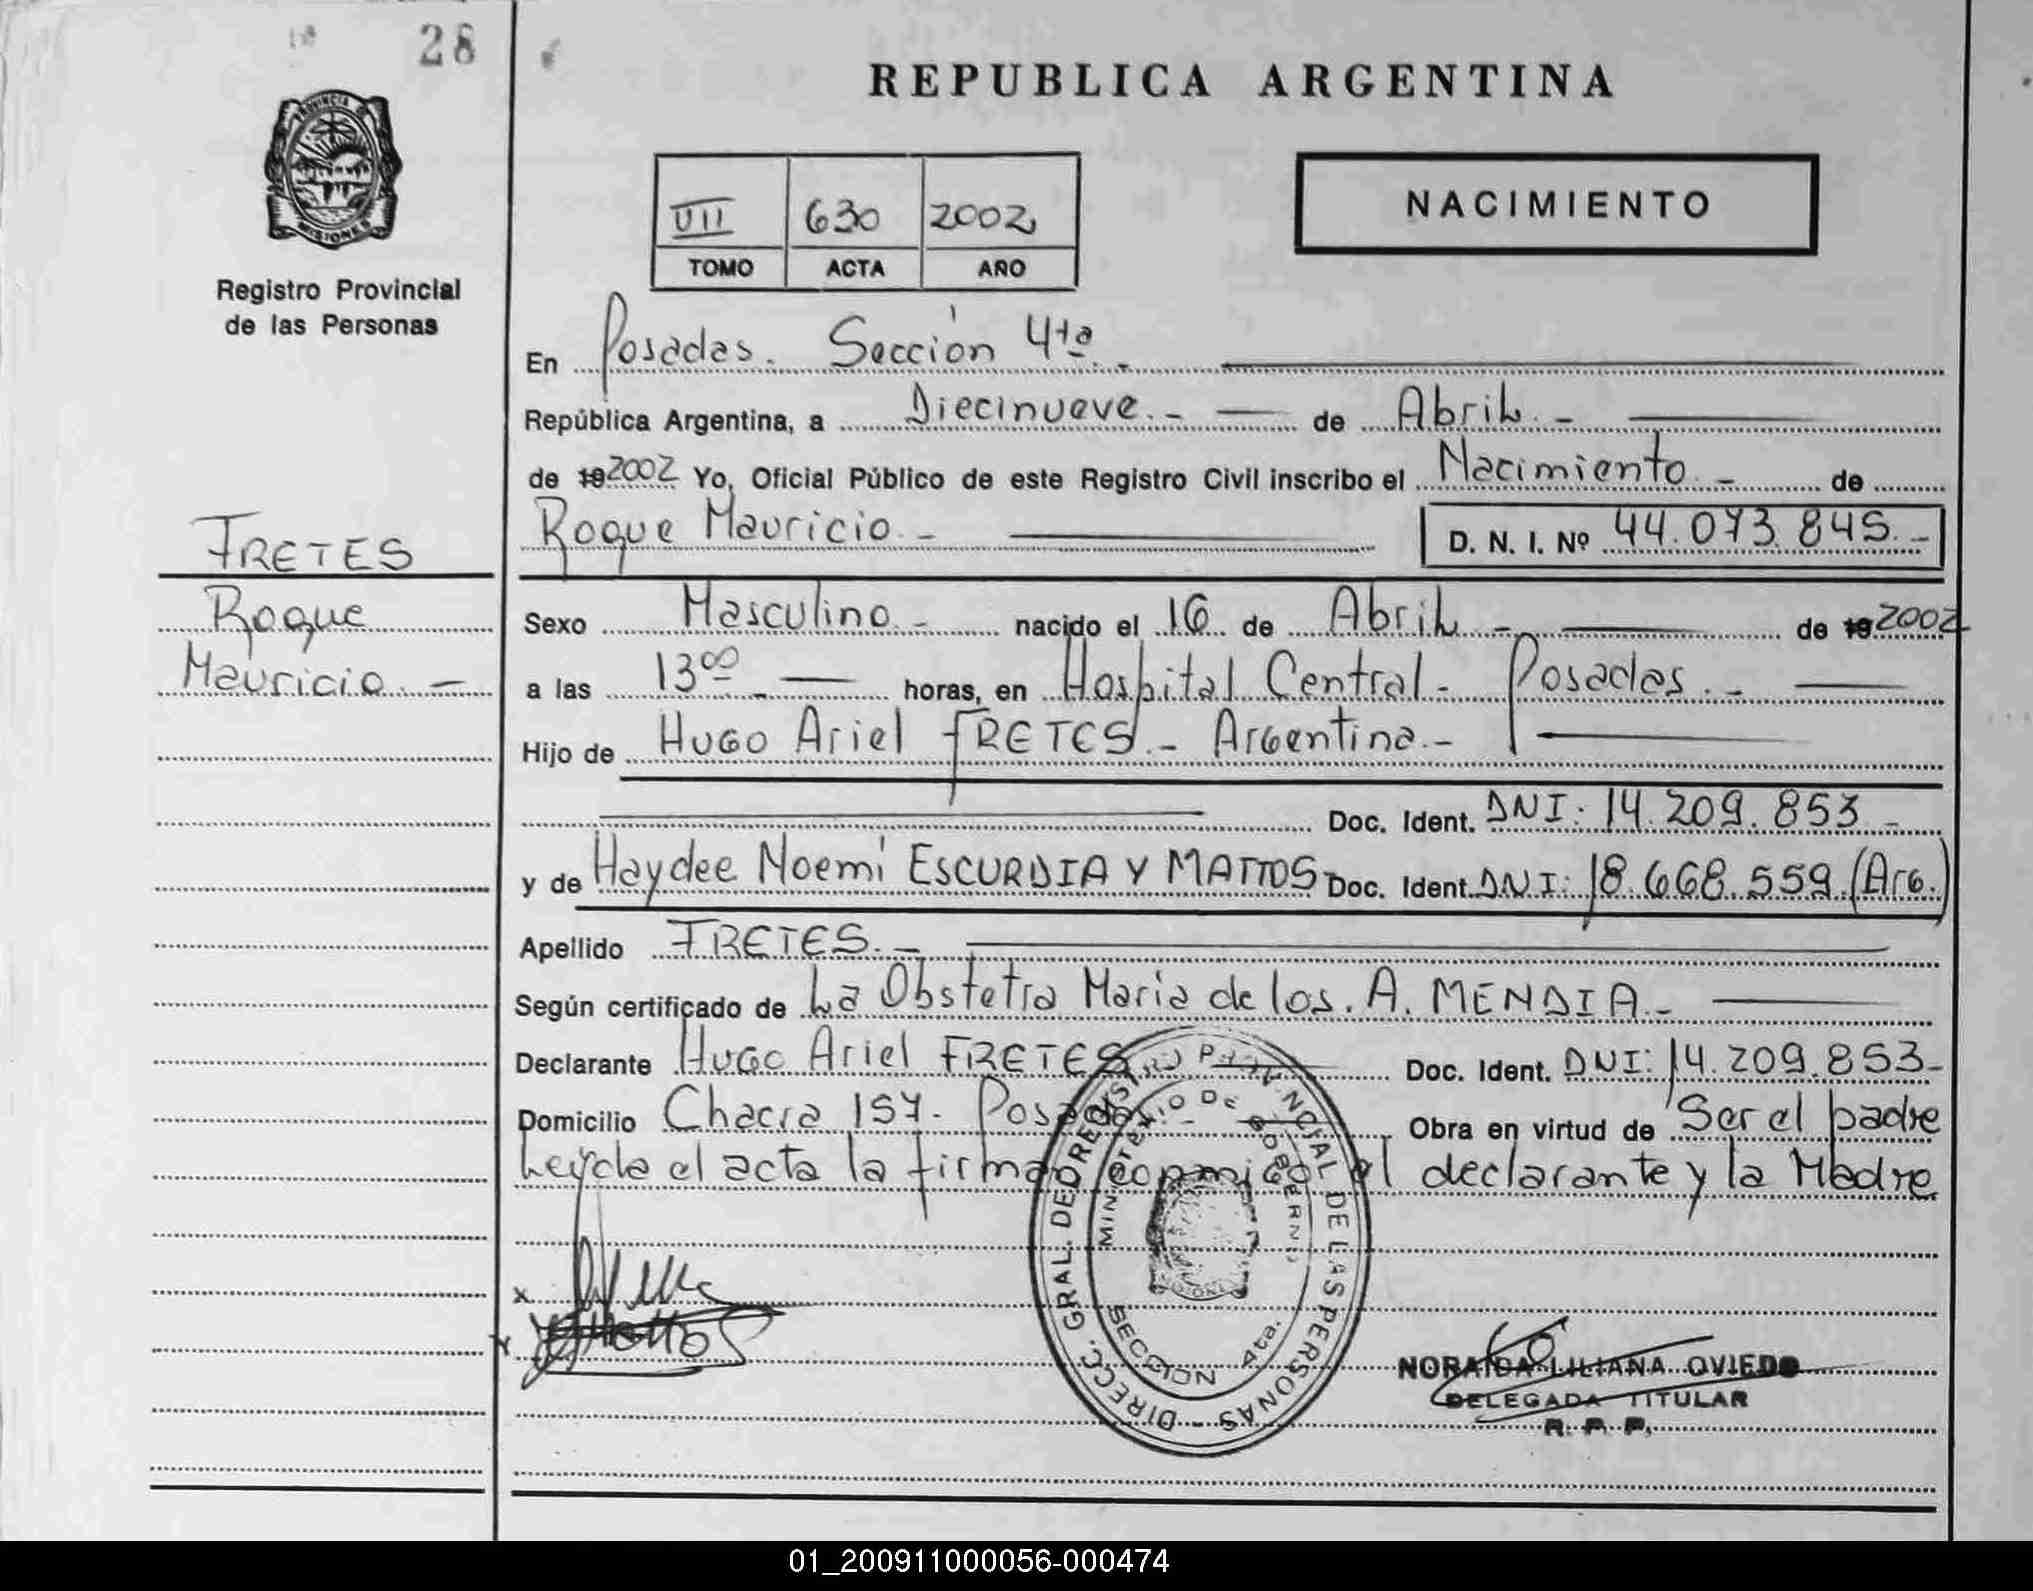 28
REPUBLICA ARGENTINA
PROVINCIA DE
MISIONES
Registro Provincial
de las Personas
VII 630 2002
TOMO ACTA AÑO
NACIMIENTO
En Posadas. Sección 4ta.-
República Argentina, a Diecinueve.- de Abril.-
de 19 2002 Yo, Oficial Público de este Registro Civil inscribo el Nacimiento.- de
Roque Mauricio.- D. N. I. Nº 44.073.845.-
FRETES
Roque
Mauricio.-
Sexo Masculino.- nacido el 16 de Abril.- de 19 2002
a las 13 00 horas, en Hospital Central- Posadas.-
Hijo de Hugo Ariel FRETES.- Argentina.-
Doc. Ident. DNI: 14.209.853.-
y de Haydee Noemí ESCURDIA Y MATTOS Doc. Ident. DNI: 18.668.559.(Arg.)
Apellido FRETES.-
Según certificado de La Obstetra Maria de los. A. MENDIA.-
Declarante Hugo Ariel FRETES Doc. Ident. DNI: 14.209.853-
Domicilio Chacra 157. Posadas.- Obra en virtud de Ser el padre
Leída el acta la firman conmigo el declarante y la Madre
x
x
DIRECC. GRAL. DE REGISTRO PROVINCIAL DE LAS PERSONAS -
MINISTERIO DE GOBIERNO
SECCION 4ta.
NORAIDA LILIANA OVIEDO
DELEGADA TITULAR
R. P. P.
01_200911000056-000474